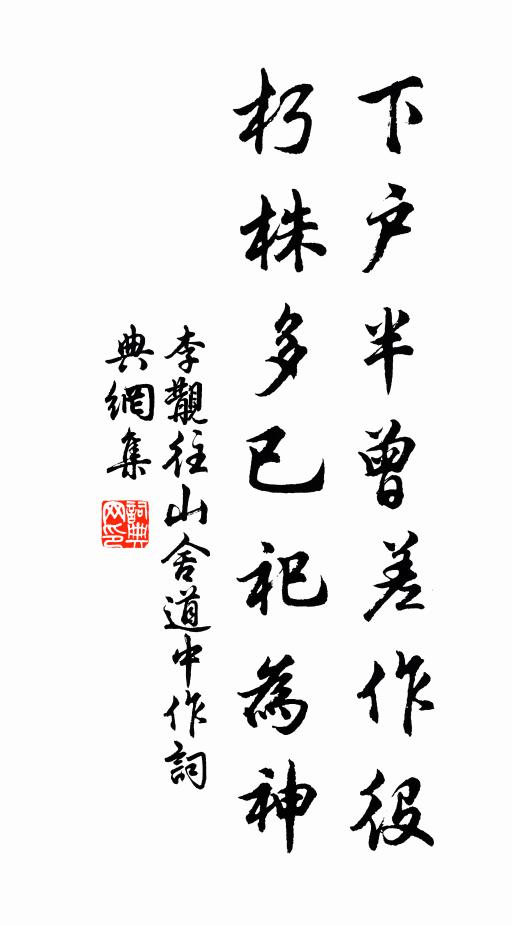 下户半曾差作役
朽株多已祀為神
李觀往山舍道中作詞
典網集
詞典网印